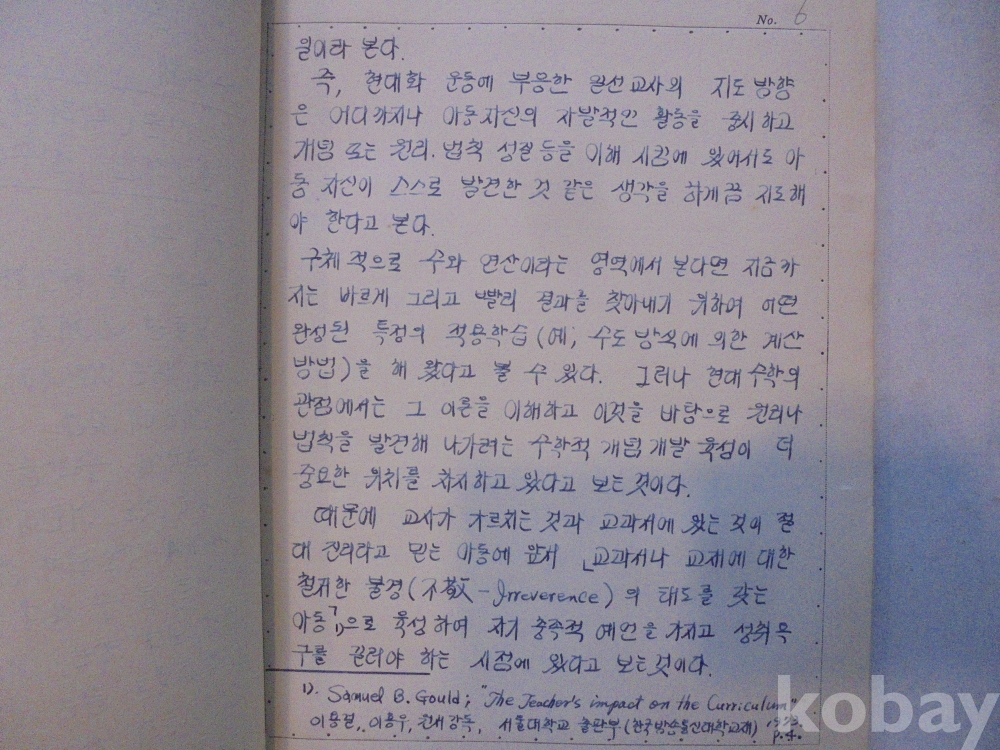 No. 6
일이라 본다.
즉, 현대화 운동에 부응한 일선교사의 지도방향
은 어디까지나 아동자신의 자발적인 활동을 중시하고
개념 또는 원리. 법칙 성질등을 이해 시킴에 있어서도 아
동 자신이 스스로 발견한 것 같은 생각을 하게끔 지도해
야 한다고 본다.
구체적으로 수와 연산이라는 영역에서 본다면 지금까
지는 바르게 그리고 빨리 결과를 찾아내기 위하여 어떤
완성된 특정의 적용학습(예; 수도방식에 의한 계산
방법)을 해 왔다고 볼 수 있다. 그러나 현대수학의
관점에서는 그 이론을 이해하고 이것을 바탕으로 원리나
법칙을 발견해 나가려는 수학적 개념개발 육성이 더
중요한 위치를 차지하고 있다고 보는것이다.
때문에 교사가 가르치는 것과 교과서에 있는 것이 절
대 진리라고 믿는 아동에 앞서 「교과서나 교재에 대한
철저한 불경(不敬-Irreverence)의 태도를 갖는
아동」1)으로 육성하여 자기 충족적 예언을 가지고 성취욕
구를 길러야 하는 시점에 왔다고 보는것이다.
1). Samuel B. Gould; "The Teacher's impact on the Curriculum"
이용걸, 이용우, 원서강독, 서울대학교 출판부(한국방송통신대학교재)
p.4.
kobay